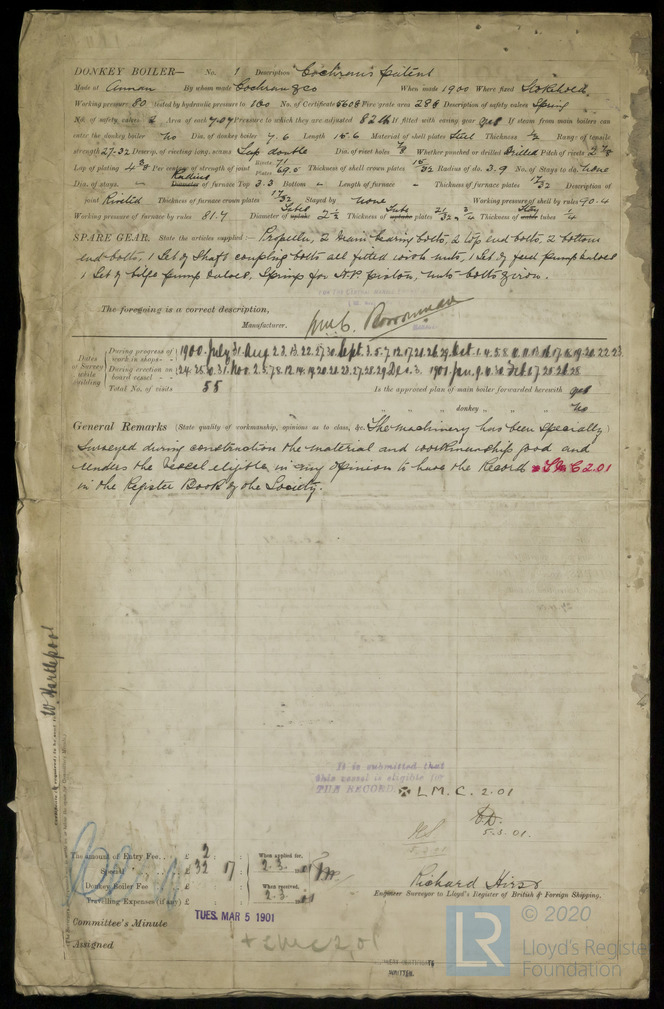 DONKEY BOILER— No. 1 Description Cochran's patent
Made at Annan By whom made Cochran & Co When made 1900 Where fixed Stokehold
Working pressure 80 tested by hydraulic pressure to 160 No. of Certificate 5608 Fire grate area 28 Description of safety valves Spring
No. of safety valves 2 Area of each 7.07 Pressure to which they are adjusted 82 lb If fitted with easing gear yes If steam from main boilers can
enter the donkey boiler no Dia. of donkey boiler 7.6 Length 15.6 Material of shell plates Steel Thickness 1/2 Range of tensile
strength 27-32 Descrip. of riveting long. seams Lap double Dia. of rivet holes 7/8 Whether punched or drilled Drilled Pitch of rivets 2 7/8
Lap of plating 4 3/8 Per centage of strength of joint Rivets 71 Plates 69.5 Thickness of shell crown plates 15/32 Radius of do. 3.9 No. of Stays to do. None
Dia. of stays. – Radius Diameter of furnace Top 3.3 Bottom – Length of furnace – Thickness of furnace plates 17/32 Description of
joint Riveted Thickness of furnace crown plates 17/32 Stayed by None Working pressure of shell by rules 90.4
Working pressure of furnace by rules 81.7 Diameter of uptake Tubes 2 1/2 Thickness of uptake Tube plates 21/32 & 3/4 Thickness of water Stay tubes 1/4
SPARE GEAR. State the articles supplied:— Propeller, 2 main bearing bolts, 2 top end bolts, 2 bottom
end bolts, 1 Set of Shaft coupling bolts all fitted with nuts, 1 Set of feed pump valves
1 Set of bilge pump valves, Springs for H.P. piston, nuts bolts & iron.
The foregoing is a correct description,
Manufacturer.
Dates of Survey while building
During progress of work in shops - - 1900. July 31 Aug 2 3 13 22 27 30 Sept. 3 5 7 12 17 21 26 29 Oct 1 4 5 8
During erection on board vessel - - - 24 25 31 Nov. 2 5 7 8 12 14 19 20
Total No. of visits 55 Is the approved plan of main boiler forwarded herewith yes
" " donkey " " " no
General Remarks (State quality of workmanship, opinions as to class, &c. The machinery has been specially
surveyed during construction the material and workmanship good and
renders the vessel eligible in my opinion to have the Record LMC 2.01
in the Register Book of the Society.
W. Hartlepool
It is submitted that
this vessel is eligible for
THE RECORD ✠ L.M.C. 2.01
5.3.01.
The amount of Entry Fee. . . £ 2 : : When applied for,
Special . . . £ 32 : 17 : 2.3.
Donkey Boiler Fee . . . £ : : When received,
Travelling Expenses (if any) £ : : 2.3.
Richard Hirst
Engineer Surveyor to Lloyd's Register of British & Foreign Shipping.
Committee's Minute TUES. MAR 5 1901
Assigned + LMC 2,01
WRITTEN.
© 2020
LR
Lloyd's Register
Foundation